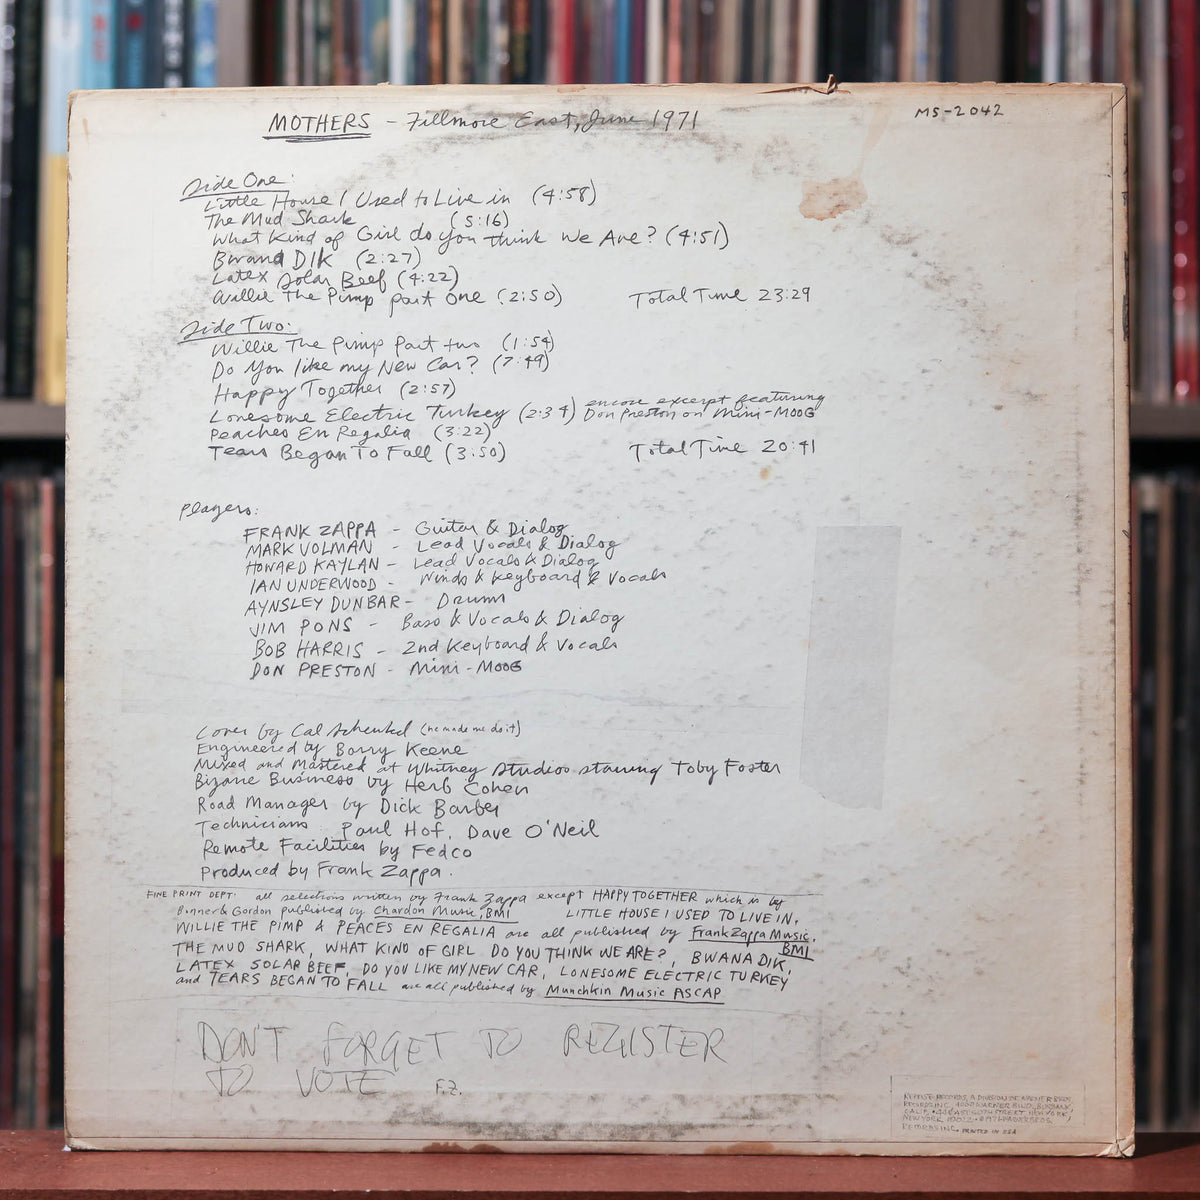 MOTHERS - Fillmore East, June 1971
MS-2042
Side One:
Little House I Used to Live in (4:58)
The Mud Shark (5:16)
What Kind of Girl do you think We Are? (4:51)
Bwana DIK (2:27)
Latex Solar Beef (4:22)
Willie The Pimp part one (2:50) Total Time 23:29
Side Two:
Willie The Pimp Part two (1:54)
Do You like my New Car? (7:49)
Happy Together (2:57)
Lonesome Electric Turkey (2:34) encore excerpt featuring
Don Preston on Mini-MOOG
Peaches En Regalia (3:22)
Tears Began To Fall (3:50) Total Time 20:41
Players:
FRANK ZAPPA - Guitar & Dialog
MARK VOLMAN - Lead Vocals & Dialog
HOWARD KAYLAN - Lead Vocals & Dialog
IAN UNDERWOOD - Winds & Keyboard & Vocals
AYNSLEY DUNBAR - Drums
JIM PONS - Bass & Vocals & Dialog
BOB HARRIS - 2nd Keyboard & Vocals
DON PRESTON - Mini-MOOG
Cover by Cal Schenkel (he made me do it)
Engineered by Barry Keene
Mixed and Mastered at Whitney Studios starring Toby Foster
Bizarre Business by Herb Cohen
Road Manager by Dick Barber
Technicians Paul Hof, Dave O'Neil
Remote Facilities by Fedco
Produced by Frank Zappa.
FINE PRINT DEPT: all selections written by Frank Zappa except HAPPY TOGETHER which is by
Bonner & Gordon published by Chardon Music, BMI LITTLE HOUSE I USED TO LIVE IN,
WILLIE THE PIMP & PEACES EN REGALIA are all published by Frank Zappa Music,
BMI
THE MUD SHARK, WHAT KIND OF GIRL DO YOU THINK WE ARE?, BWANA DIK,
LATEX SOLAR BEEF, DO YOU LIKE MY NEW CAR, LONESOME ELECTRIC TURKEY
and TEARS BEGAN TO FALL are all published by Munchkin Music ASCAP
DON'T FORGET TO REGISTER
TO VOTE F.Z.
REPRISE RECORDS, A DIVISION OF WARNER BROS.
RECORDS INC. 4000 WARNER BLVD., BURBANK,
CALIF. • 44 EAST 50TH STREET NEW YORK,
NEW YORK 10022 •
RECORDS INC. PRINTED IN USA